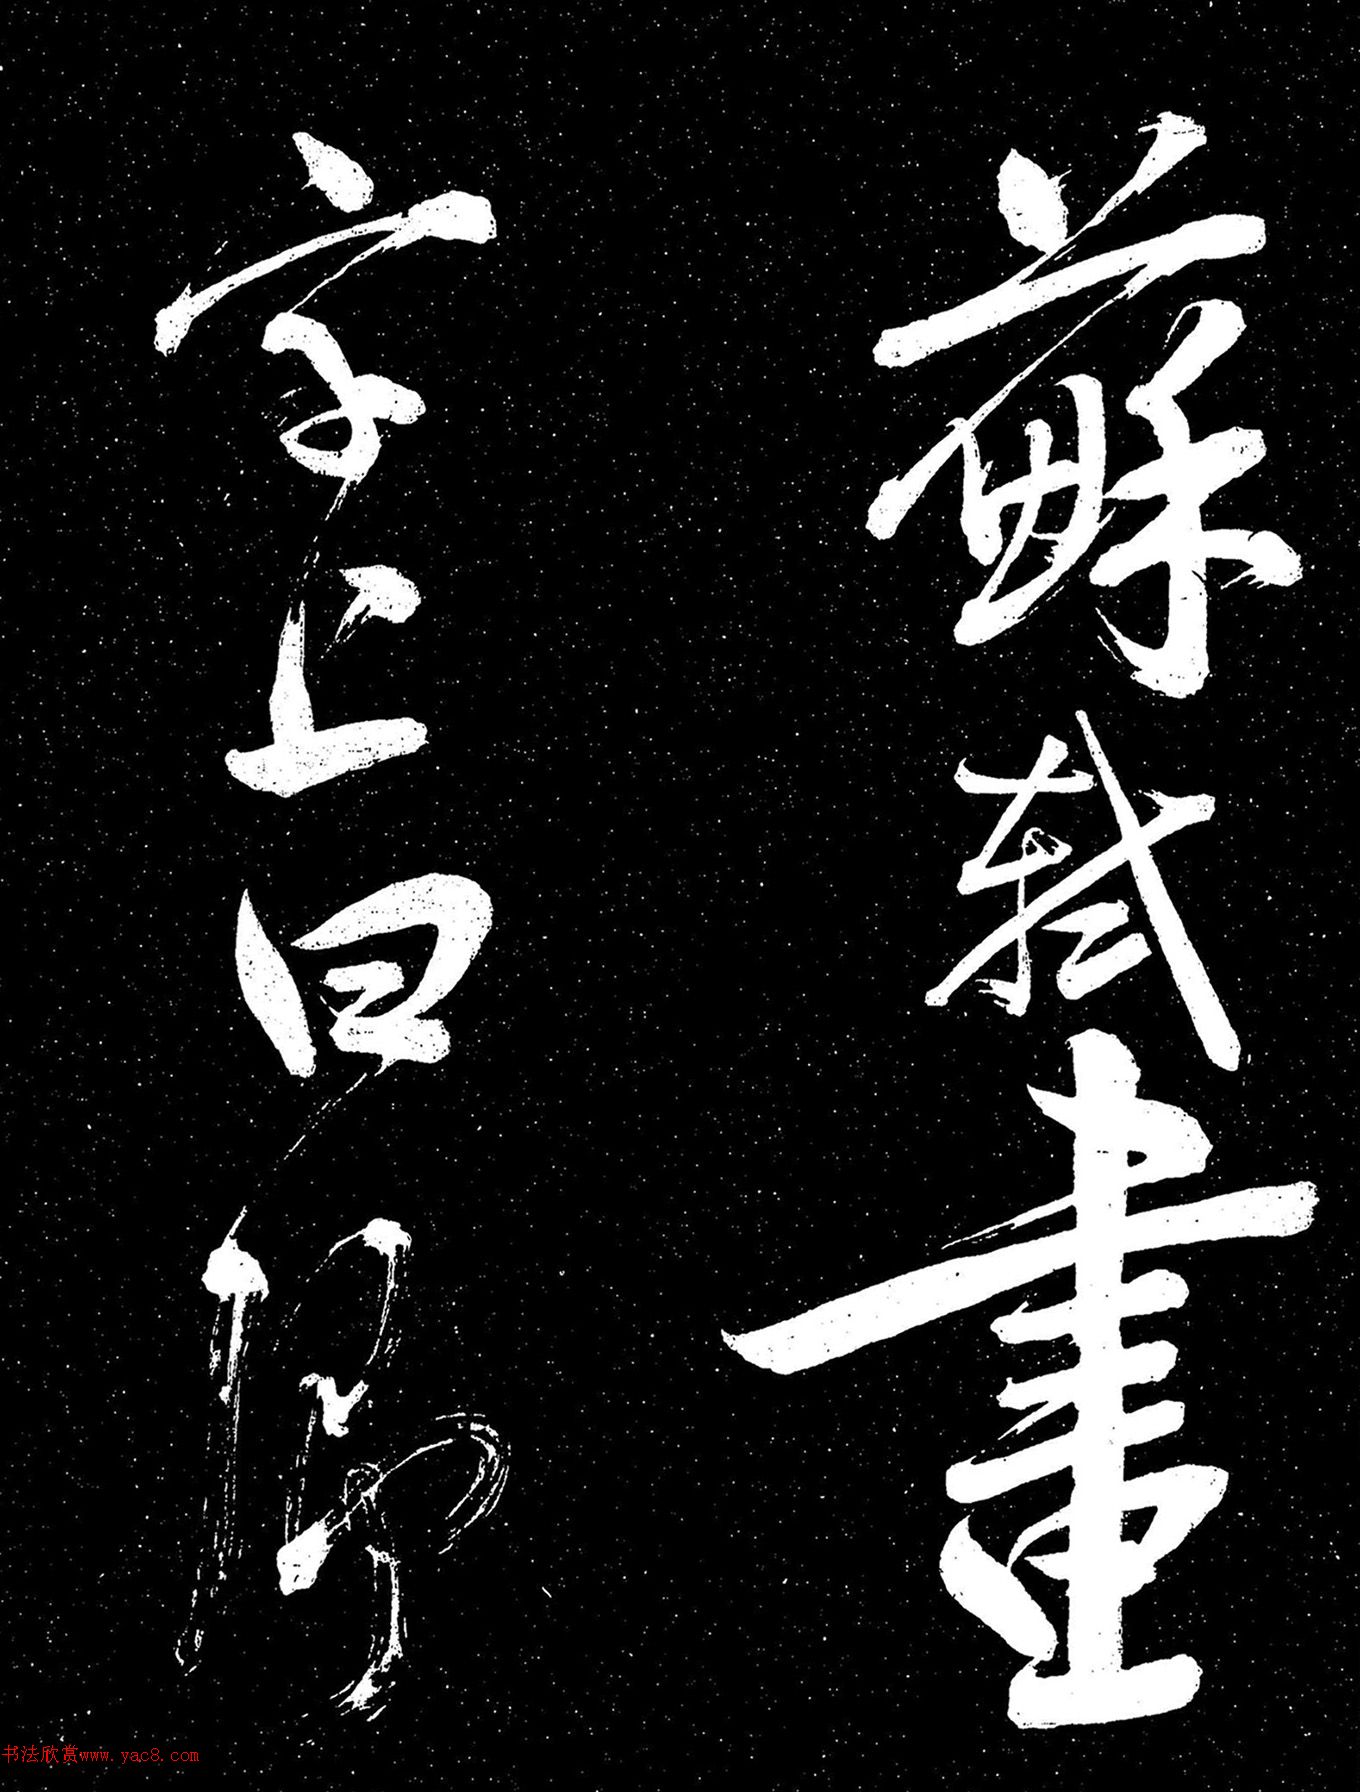 蘇軾畫
字上曰卿
书法欣赏www.yac8.com